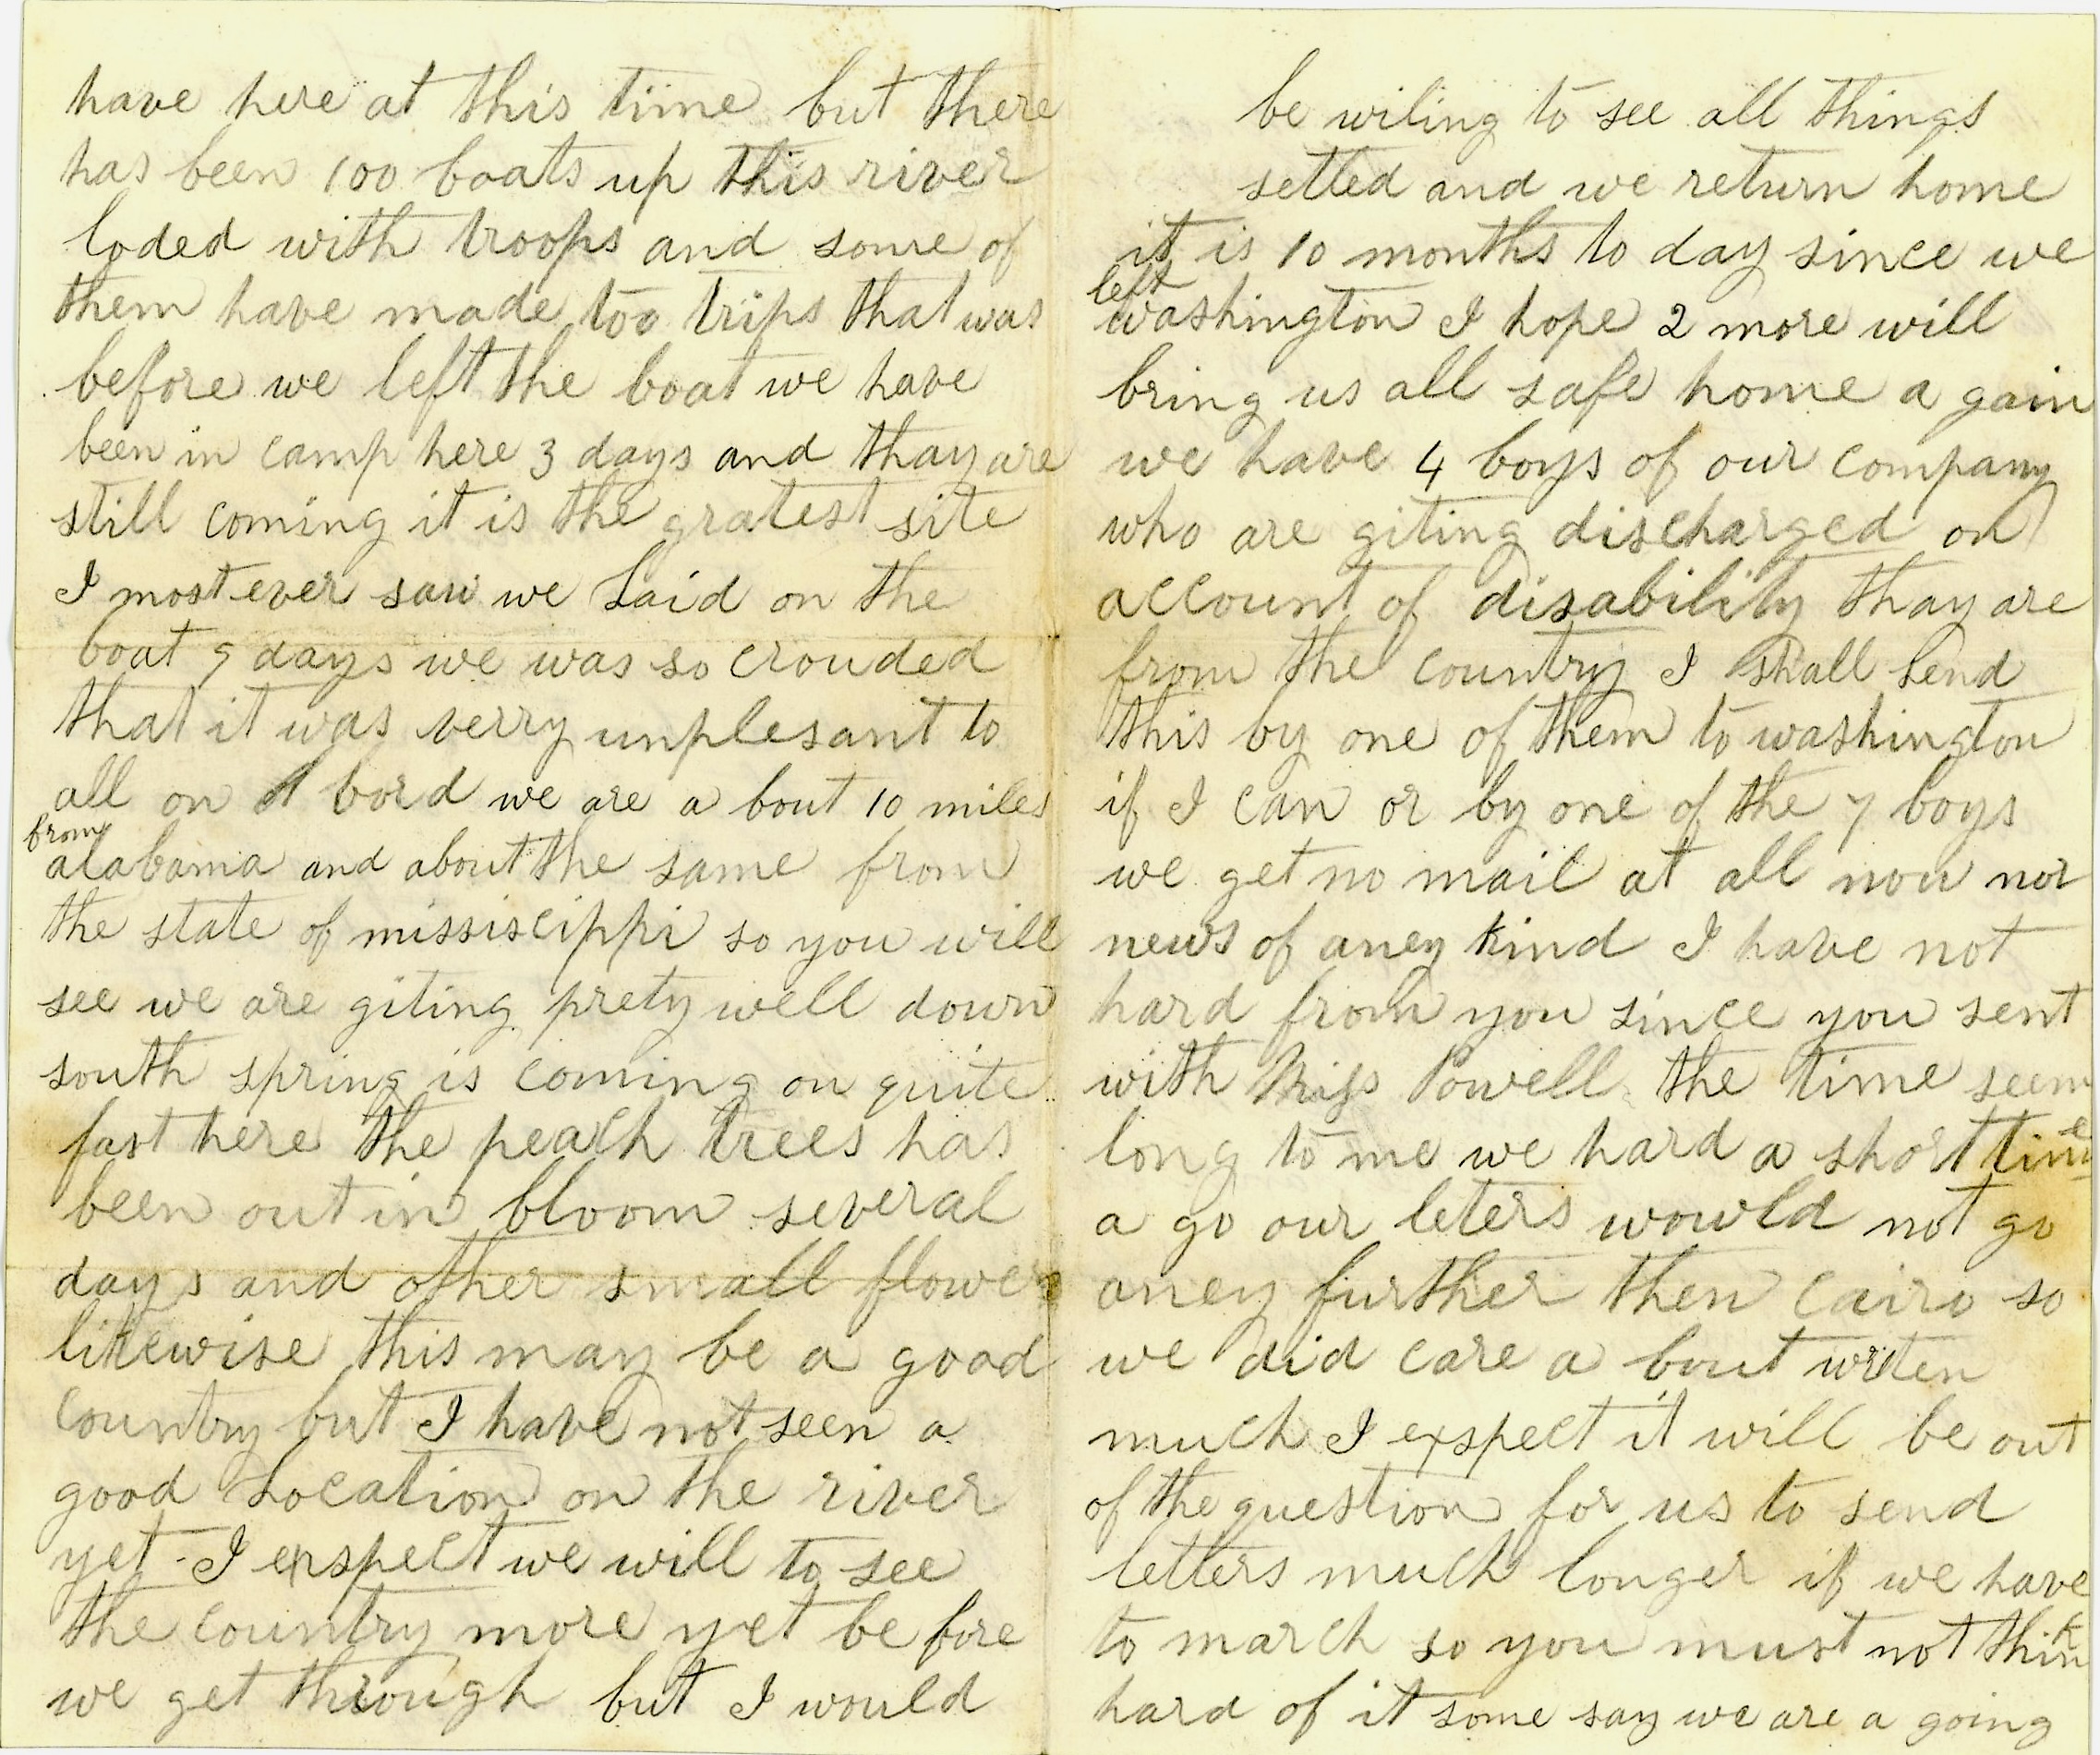 have here at this time but there
has been 100 boats up this river
loded with troops and some of
them have made too trips that was
before we left the boat we have
been in camp here 3 days and thay are
still coming it is the gratest site
I most ever saw we Laid on the
boat 9 days we was so crouded
that it was verry unplesant to
all on a bord we are a bout 10 miles
from
alabama and about the same from
the state of missiscippi so you will
see we are giting prety well down
south spring is coming on quite
fast here the peach trees has
been out in bloom several
days and other small flowers
likewise this may be a good
country but I have not seen a
good Location on the river
yet I exspect we will to see
the country more yet be fore
we get through but I would
be wiling to see all things
setled and we return home
it is 10 months to day since we
left
washington I hope 2 more will
bring us all safe home a gain
we have 4 boys of our company
who are giting discharged on
account of disability thay are
from the country I shall send
this by one of them to washington
if I can or by one of the 7 boys
we get no mail at all now nor
news of aney kind I have not
hard from you since you sent
with Miss Powell the time seem
long to me we hard a short time
a go our leters wowld not go
aney further then Cairo so
we did care a bout writen
much I expect it will be out
of the question for us to send
letters much longer if we have
to march so you must not think
hard of it some say we are a going